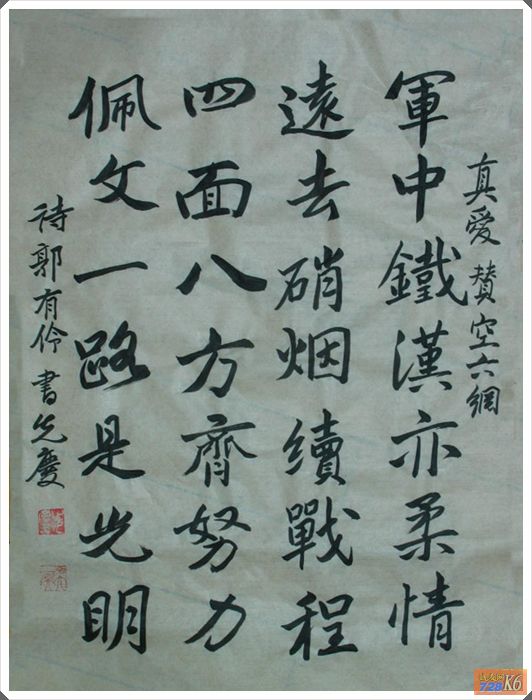 真愛 赞空六網
軍中鐵漢亦柔情
遠去硝烟續戰程
四面八方齊努力
佩文一路是光明
诗郭有伶 書先慶
战友网
728K6